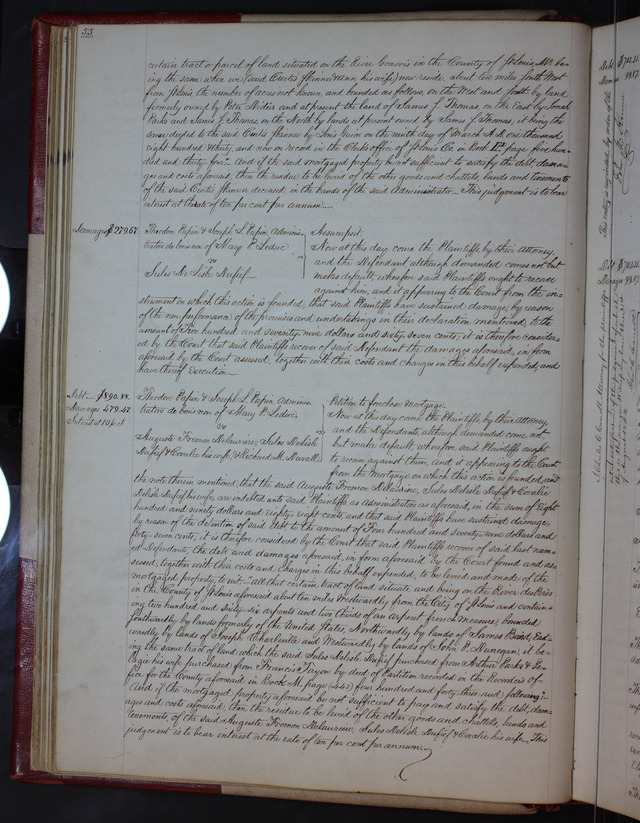 55
certain tract or parcel of land situated on the River Gravois in the County of St Louis, Mo. be-
ing the same where we (said Curtis Skinner & Ann his wife) now reside, about ten miles South West
from St Louis, the number of acres not known, and bounded as follows, on the West and South by land
formerly owned by Peter Didier and at present the land of James S. Thomas, on the East by
Parks and James S. Thomas, on the North by lands at present owned by James S. Thomas, it being the
same deeded to the said Curtis Skinner by Louis on the ninth day of March A.D. one thousand
eight hundred & thirty, and now on record in the Clerks office of St Louis Co. in Book page five hun-
dred and thirty four. And if the said mortgaged property be not sufficient to satisfy the debt, dama-
ges and costs aforesaid, then the residue to be levied of the other goods and chattels, lands and tenements
of the said Curtis Skinner deceased, in the hands of the said Administrator. This judgment is to bear
interest at the rate of ten per cent per annum.
Damages $279.67
Theodore Papin & Joseph L. Papin, Adminis-
trators de bonis non of Mary P. Leduc
vs
Jules De Lisle Dufief
Assumpsit
Now at this day come the Plaintiffs by their attorney
and the Defendant although demanded comes not but
makes default; wherefore said Plaintiffs ought to recover
against him, and it appearing to the Court from the in-
strument on which this action is founded, that said Plaintiffs have sustained damage, by reason
of the non performance of the promises and undertakings in their declaration mentioned, to the
amount of Two hundred and seventy nine dollars and sixty seven cents; it is therefore consider-
ed by the Court that said Plaintiffs recover of said Defendant the damages aforesaid, in form
aforesaid by the Court assessed, together with their costs and charges in this behalf expended, and
have thereof Execution.
Debt $890.88
Damage 479.47
Interest at 10 p ct
Theodore Papin & Joseph L. Papin, Adminis-
trators de bonis non of Mary P. Leduc
vs
Auguste Fromon Delauriere, Jules Delisle
Dufief & Coralie his wife, & Richard M. Duvall
Petition to foreclose mortgage.
Now at this day come the Plaintiffs by their attorney
and the Defendants, although demanded come not
but make default, wherefore said Plaintiffs ought
to recover against them, and it appearing to the Court
from the mortgage on which this action is founded, and
the note therein mentioned, that the said Auguste Fromon Delauriere, Jules Delisle Dufief & Coralie
Delisle Dufief his wife, are indebted unto said Plaintiffs, as Administrators as aforesaid, in the sum of Eight
hundred and ninety dollars and eighty eight cents, and that said Plaintiffs have sustained damage,
by reason of the detention of said debt to the amount of Four hundred and seventy nine dollars and
forty-seven cents; it is therefore considered by the Court that said Plaintiffs recover of said last nam-
ed Defendants, the debt and damages aforesaid, in form aforesaid by the Court found and as-
sessed; together with their costs and charges in this behalf expended, to be levied and made of the
mortgaged property, to wit: all that certain tract of land situate, and being on the River des Peres
in the County of St Louis aforesaid about ten miles Westwardly from the City of St Louis and contain-
ing two hundred and sixty-six arpents and two thirds of an arpent french measure, bounded
Southwardly by lands formerly of the United States, Northwardly by lands of James Baird, East-
wardly by lands of Joseph Charleville and Westwardly by lands of John P. Dunegan; it be-
ing the same tract of land which the said Jules Delisle Dufief purchased from Arthur Parks &
his wife purchased from Francis Tayon by deed of Partition recorded in the Recorders Of-
fice for the County aforesaid in Book M. page (443) four hundred and forty three and following.
And if the mortgaged property aforesaid be not sufficient to pay and satisfy the debt, dam-
ages and costs aforesaid, then the residue to be levied of the other goods and chattels, lands and
tenements, of the said Auguste Fromon Delauriere, Jules Delisle Dufief & Coralie his wife. This
judgment is to bear interest at the rate of ten per cent per annum.